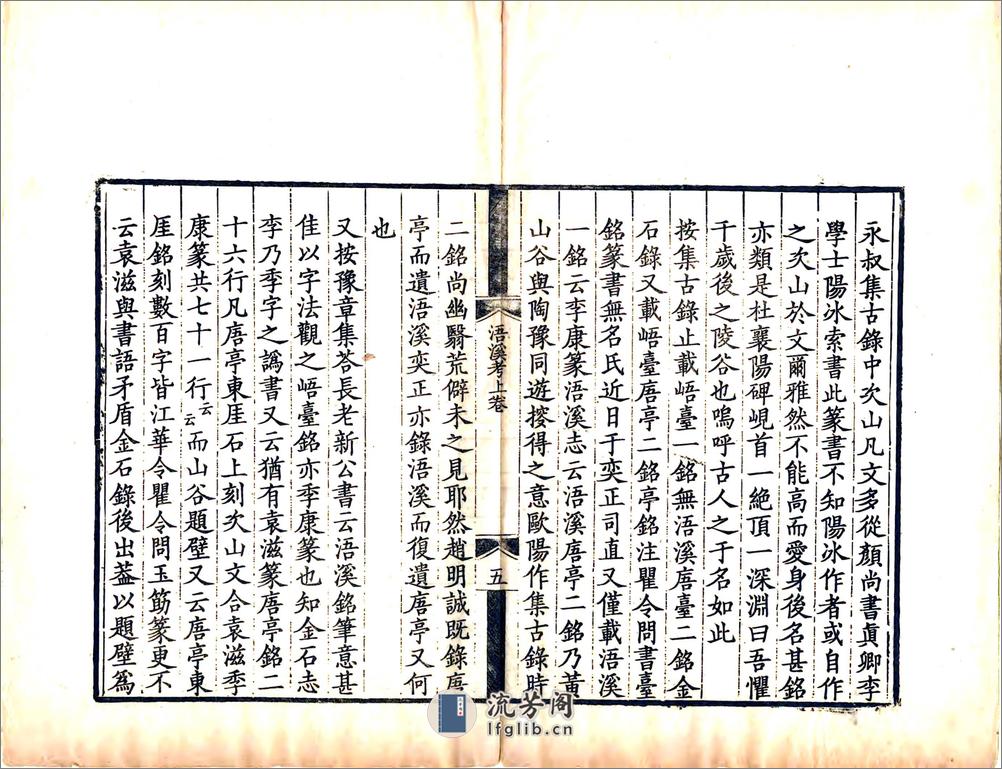 永叔集古錄中㳄山凡文多從顏尚書眞卿李
學士陽冰索書此篆書不知陽冰作者或自作
之㳄山於文爾雅然不能高而愛身後名甚銘
亦類是杜襄陽碑峴首一絶頂一深淵曰吾懼
千歲後之陵谷也嗚呼古人之于名如此
按集古錄止載峿臺一銘無浯溪㾗臺二銘金
石錄又載峿臺㾗亭二銘亭銘注瞿令問書臺
銘篆書無名氏近日于奕正司直又僅載浯溪
一銘云李康篆浯溪志云浯溪㾗亭二銘乃黃
山谷與陶豫同遊搜得之意歐陽作集古錄時
浯溪考上卷
五
二銘尚幽翳荒僻未之見耶然趙明誠既錄㾗
亭而遺浯溪奕正亦錄浯溪而復遺㾗亭又何
也
又按豫章集荅長老新公書云浯溪銘筆意甚
佳以字法觀之峿臺銘亦季康篆也知金石志
李乃季字之譌書又云猶有袁滋篆㾗亭銘二
十六行凡㾗亭東厓石上刻㳄山文合袁滋季
康篆共七十一行云云而山谷題壁又云㾗亭東
厓銘刻數百字皆江華令瞿令問玉筯篆更不
云袁滋與書語矛盾金石錄後出葢以題壁爲
流芳閣
lfglib.cn